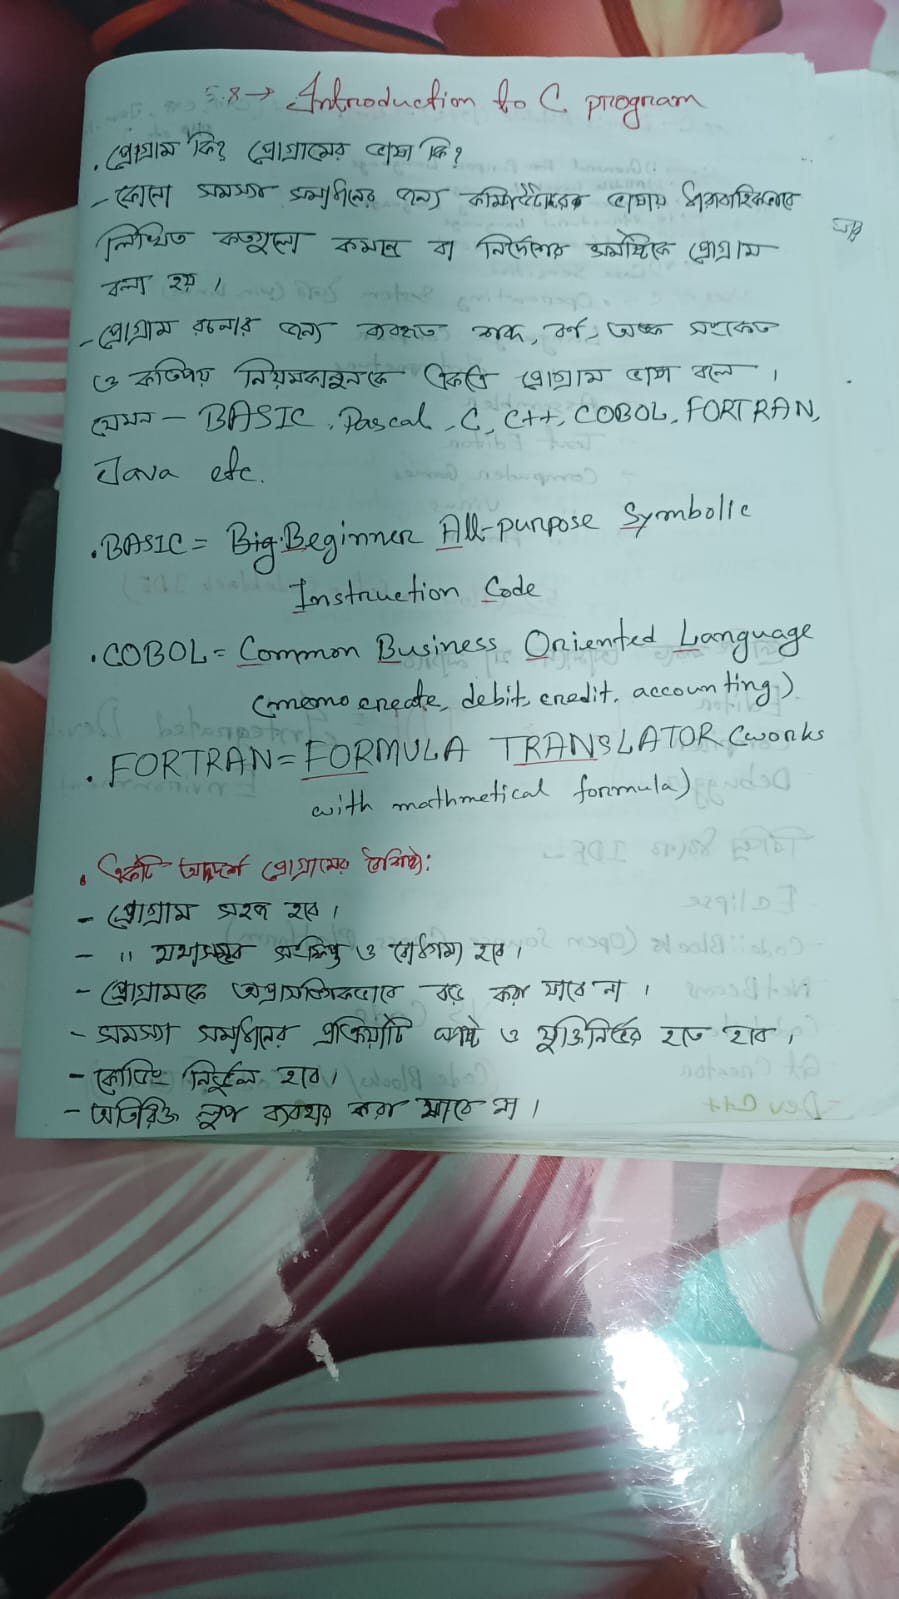 ৫.৪→ Introduction to C program
. প্রোগ্রাম কি? প্রোগ্রামের ভাষা কি?
- কোনো সমস্যা সমাধানের জন্য কম্পিউটারের ভাষায় ধারাবাহিকভাবে
লিখিত কতগুলো কমান্ড বা নির্দেশের সমষ্টিকে প্রোগ্রাম
বলা হয়।
- প্রোগ্রাম রচনার জন্য ব্যবহৃত শব্দ, বর্ণ, অঙ্ক সংকেত
ও কতিপয় নিয়মকানুনকে একত্রে প্রোগ্রাম ভাষা বলে।
যেমন - BASIC, Pascal, C, C++, COBOL, FORTRAN,
Java etc.
. BASIC = Beginner All-purpose Symbolic
Instruction Code
. COBOL = Common Business Oriented Language
(memo create, debit, credit, accounting)
. FORTRAN = FORMULA TRANSLATOR (works
with mathmetical formula)
. একটি আদর্শ প্রোগ্রামের বৈশিষ্ট্য:
- প্রোগ্রাম সহজ হবে।
- " যথাসম্ভব সংক্ষিপ্ত ও বোধগম্য হবে।
- প্রোগ্রামকে অপ্রাসঙ্গিকভাবে বড় করা যাবে না।
- সমস্যা সমাধানের প্রক্রিয়াটি স্পষ্ট ও যুক্তিনির্ভর হতে হবে।
- কোডিং নির্ভুল হবে।
- অতিরিক্ত লুপ ব্যবহার করা যাবে না।